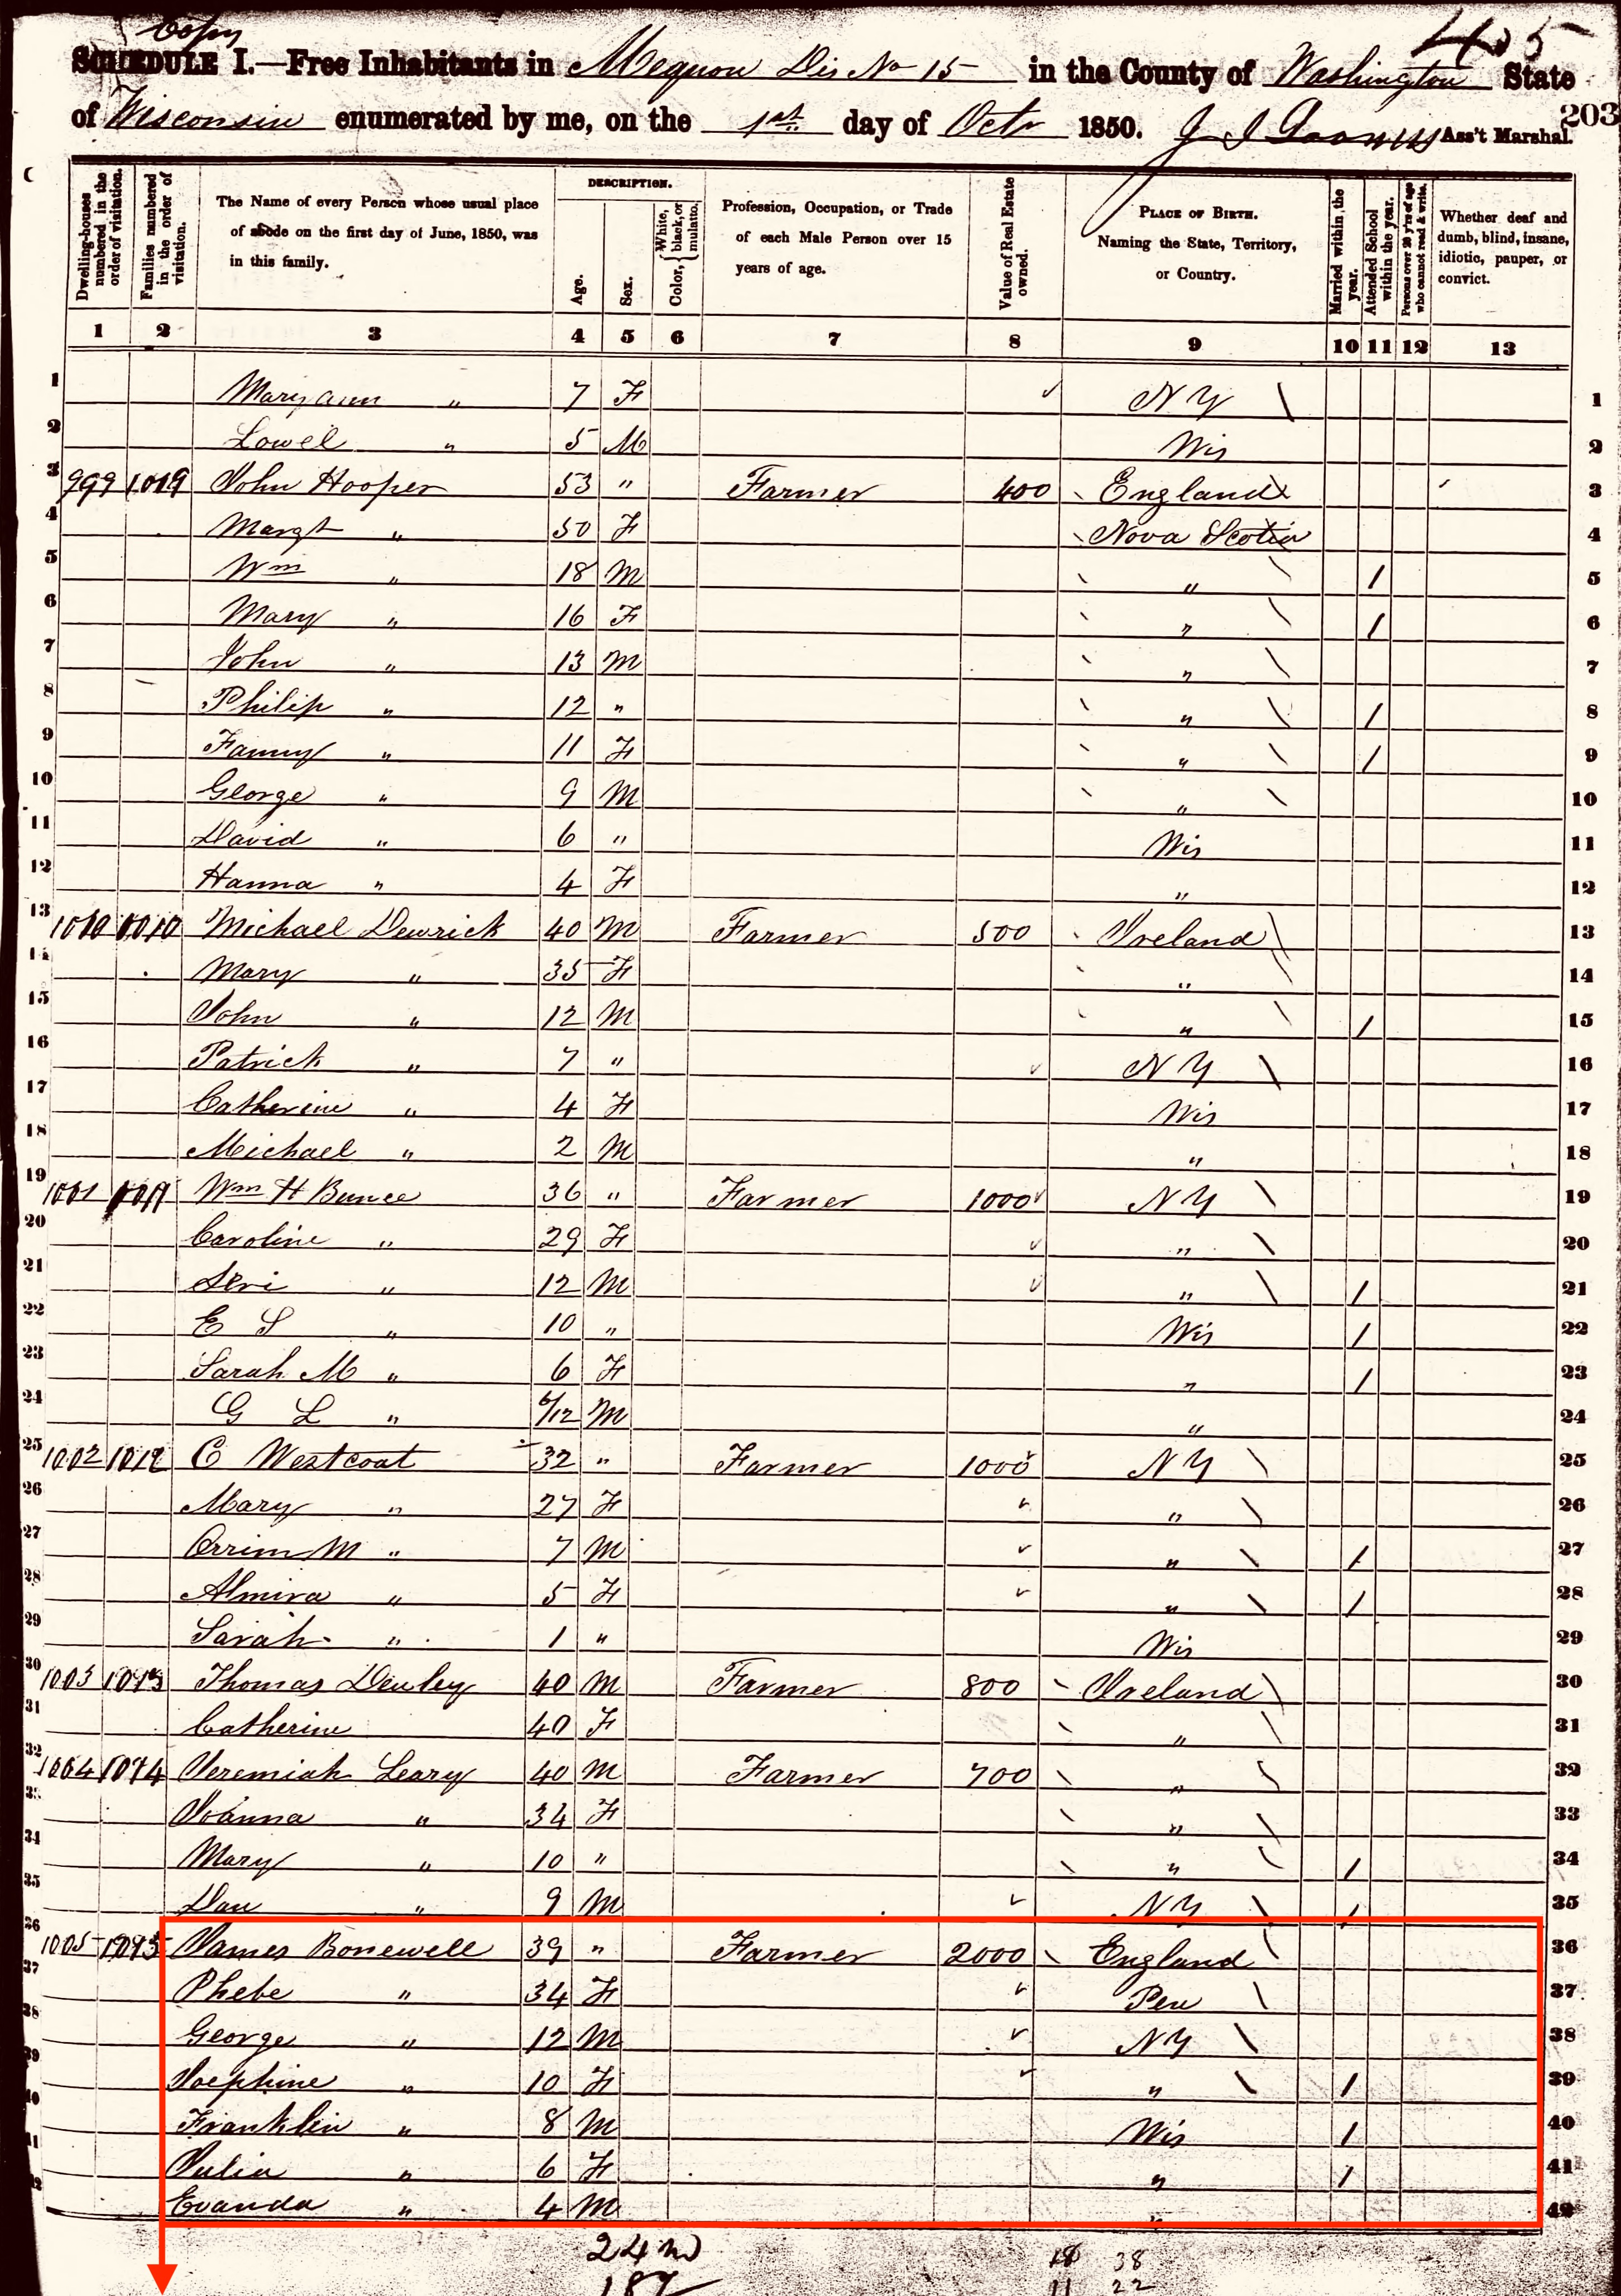 Copy
405
SCHEDULE I.—Free Inhabitants in Mequon Dis No 15 in the County of Washington State
of Wisconsin enumerated by me, on the 1st day of Octr 1850. Ass't Marshal.
203
Dwelling-houses numbered in the order of visitation.
Families numbered in the order of visitation.
The Name of every Person whose usual place of abode on the first day of June, 1850, was in this family.
DESCRIPTION.
Age.
Sex.
Color, { White, black, or mulatto.
Profession, Occupation, or Trade of each Male Person over 15 years of age.
Value of Real Estate owned.
PLACE OF BIRTH. Naming the State, Territory, or Country.
Married within the year.
Attended School within the year.
Persons over 20 y'rs of age who cannot read & write.
Whether deaf and dumb, blind, insane, idiotic, pauper, or convict.
1 2 3 4 5 6 7 8 9 10 11 12 13
1 Maryann " 7 F N Y \ 1
2 Lowel " 5 M Wis 2
3 999 1009 John Hooper 53 " Farmer 400 England 3
4 Margt " 50 F Nova Scotia 4
5 Wm " 18 M " \ / 5
6 Mary " 16 F " \ / 6
7 John " 13 M " \ 7
8 Philip " 12 " " \ / 8
9 Fanny " 11 F " \ / 9
10 George " 9 M " \ 10
11 David " 6 " Wis 11
12 Hanna " 4 F " 12
13 1010 Michael Dewrick 40 M Farmer 500 Ireland \ 13
14 Mary " 35 F " \ 14
15 John " 12 M " \ / 15
16 Patrick " 7 " N Y \ 16
17 Catherine " 4 F Wis 17
18 Michael " 2 M " 18
19 1001 1011 Wm H Bunce 36 " Farmer 1000 N Y \ 19
20 Caroline " 29 F " \ 20
21 Levi " 12 M " \ / 21
22 E S " 10 " Wis / 22
23 Sarah M " 6 F " / 23
24 G L " 6/12 M " 24
25 1002 1012 C Westcoat 32 " Farmer 1000 N Y \ 25
26 Mary " 27 F " \ 26
27 Orrim M " 7 M " \ / 27
28 Almira " 5 F " \ / 28
29 Sarah " 1 " Wis 29
30 1003 1013 Thomas Dewley 40 M Farmer 800 Ireland \ 30
31 Catherine 40 F " \ 31
32 1004 1014 Jeremiah Leary 40 M Farmer 700 " \ 32
33 Joanna " 34 F " \ 33
34 Mary " 10 " " \ / 34
35 Dan " 9 M N Y \ / 35
36 1005 1015 James Bonewell 39 " Farmer 2000 England \ 36
37 Phebe " 34 F Pen \ 37
38 George " 12 M N Y \ 38
39 Joephine " 10 F " \ / 39
40 Franklin " 8 M Wis / 40
41 Julia " 6 F " / 41
42 Evanda " 4 M " 42
24 m
18 38
11 22